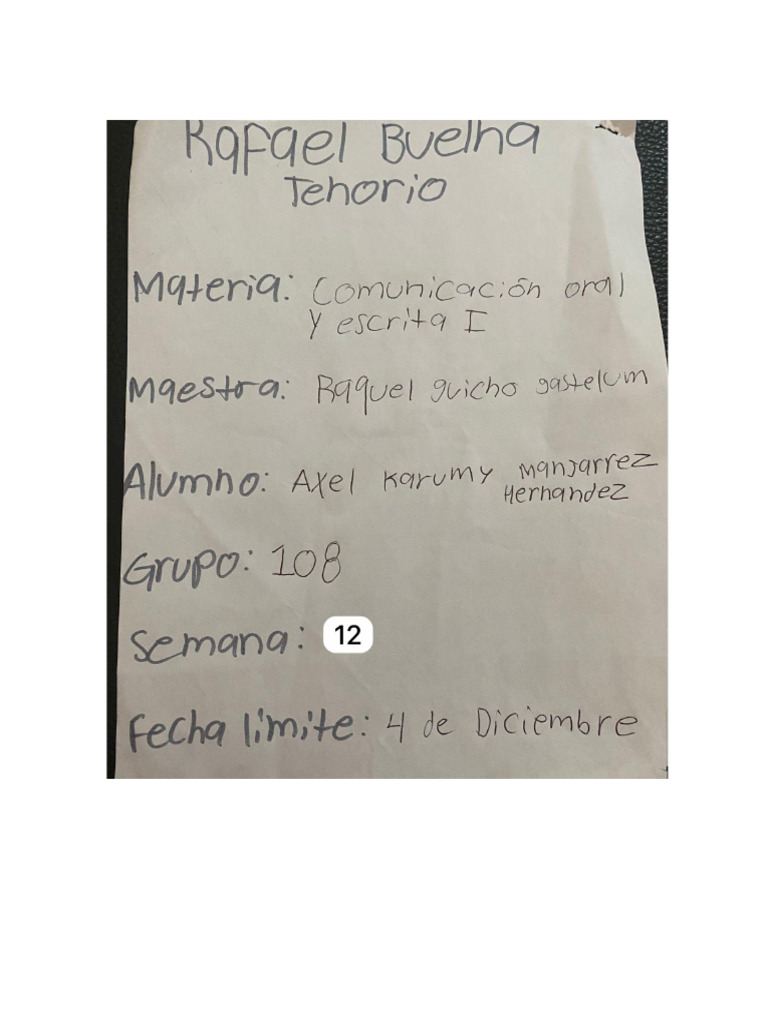 Rafael Buelna
Tenorio
Materia: Comunicación oral
y escrita I
Maestra: Raquel guicho gastelum
Alumno: Axel Karumy Manjarrez
Hernandez
Grupo: 108
Semana: 12
Fecha límite: 4 de Diciembre